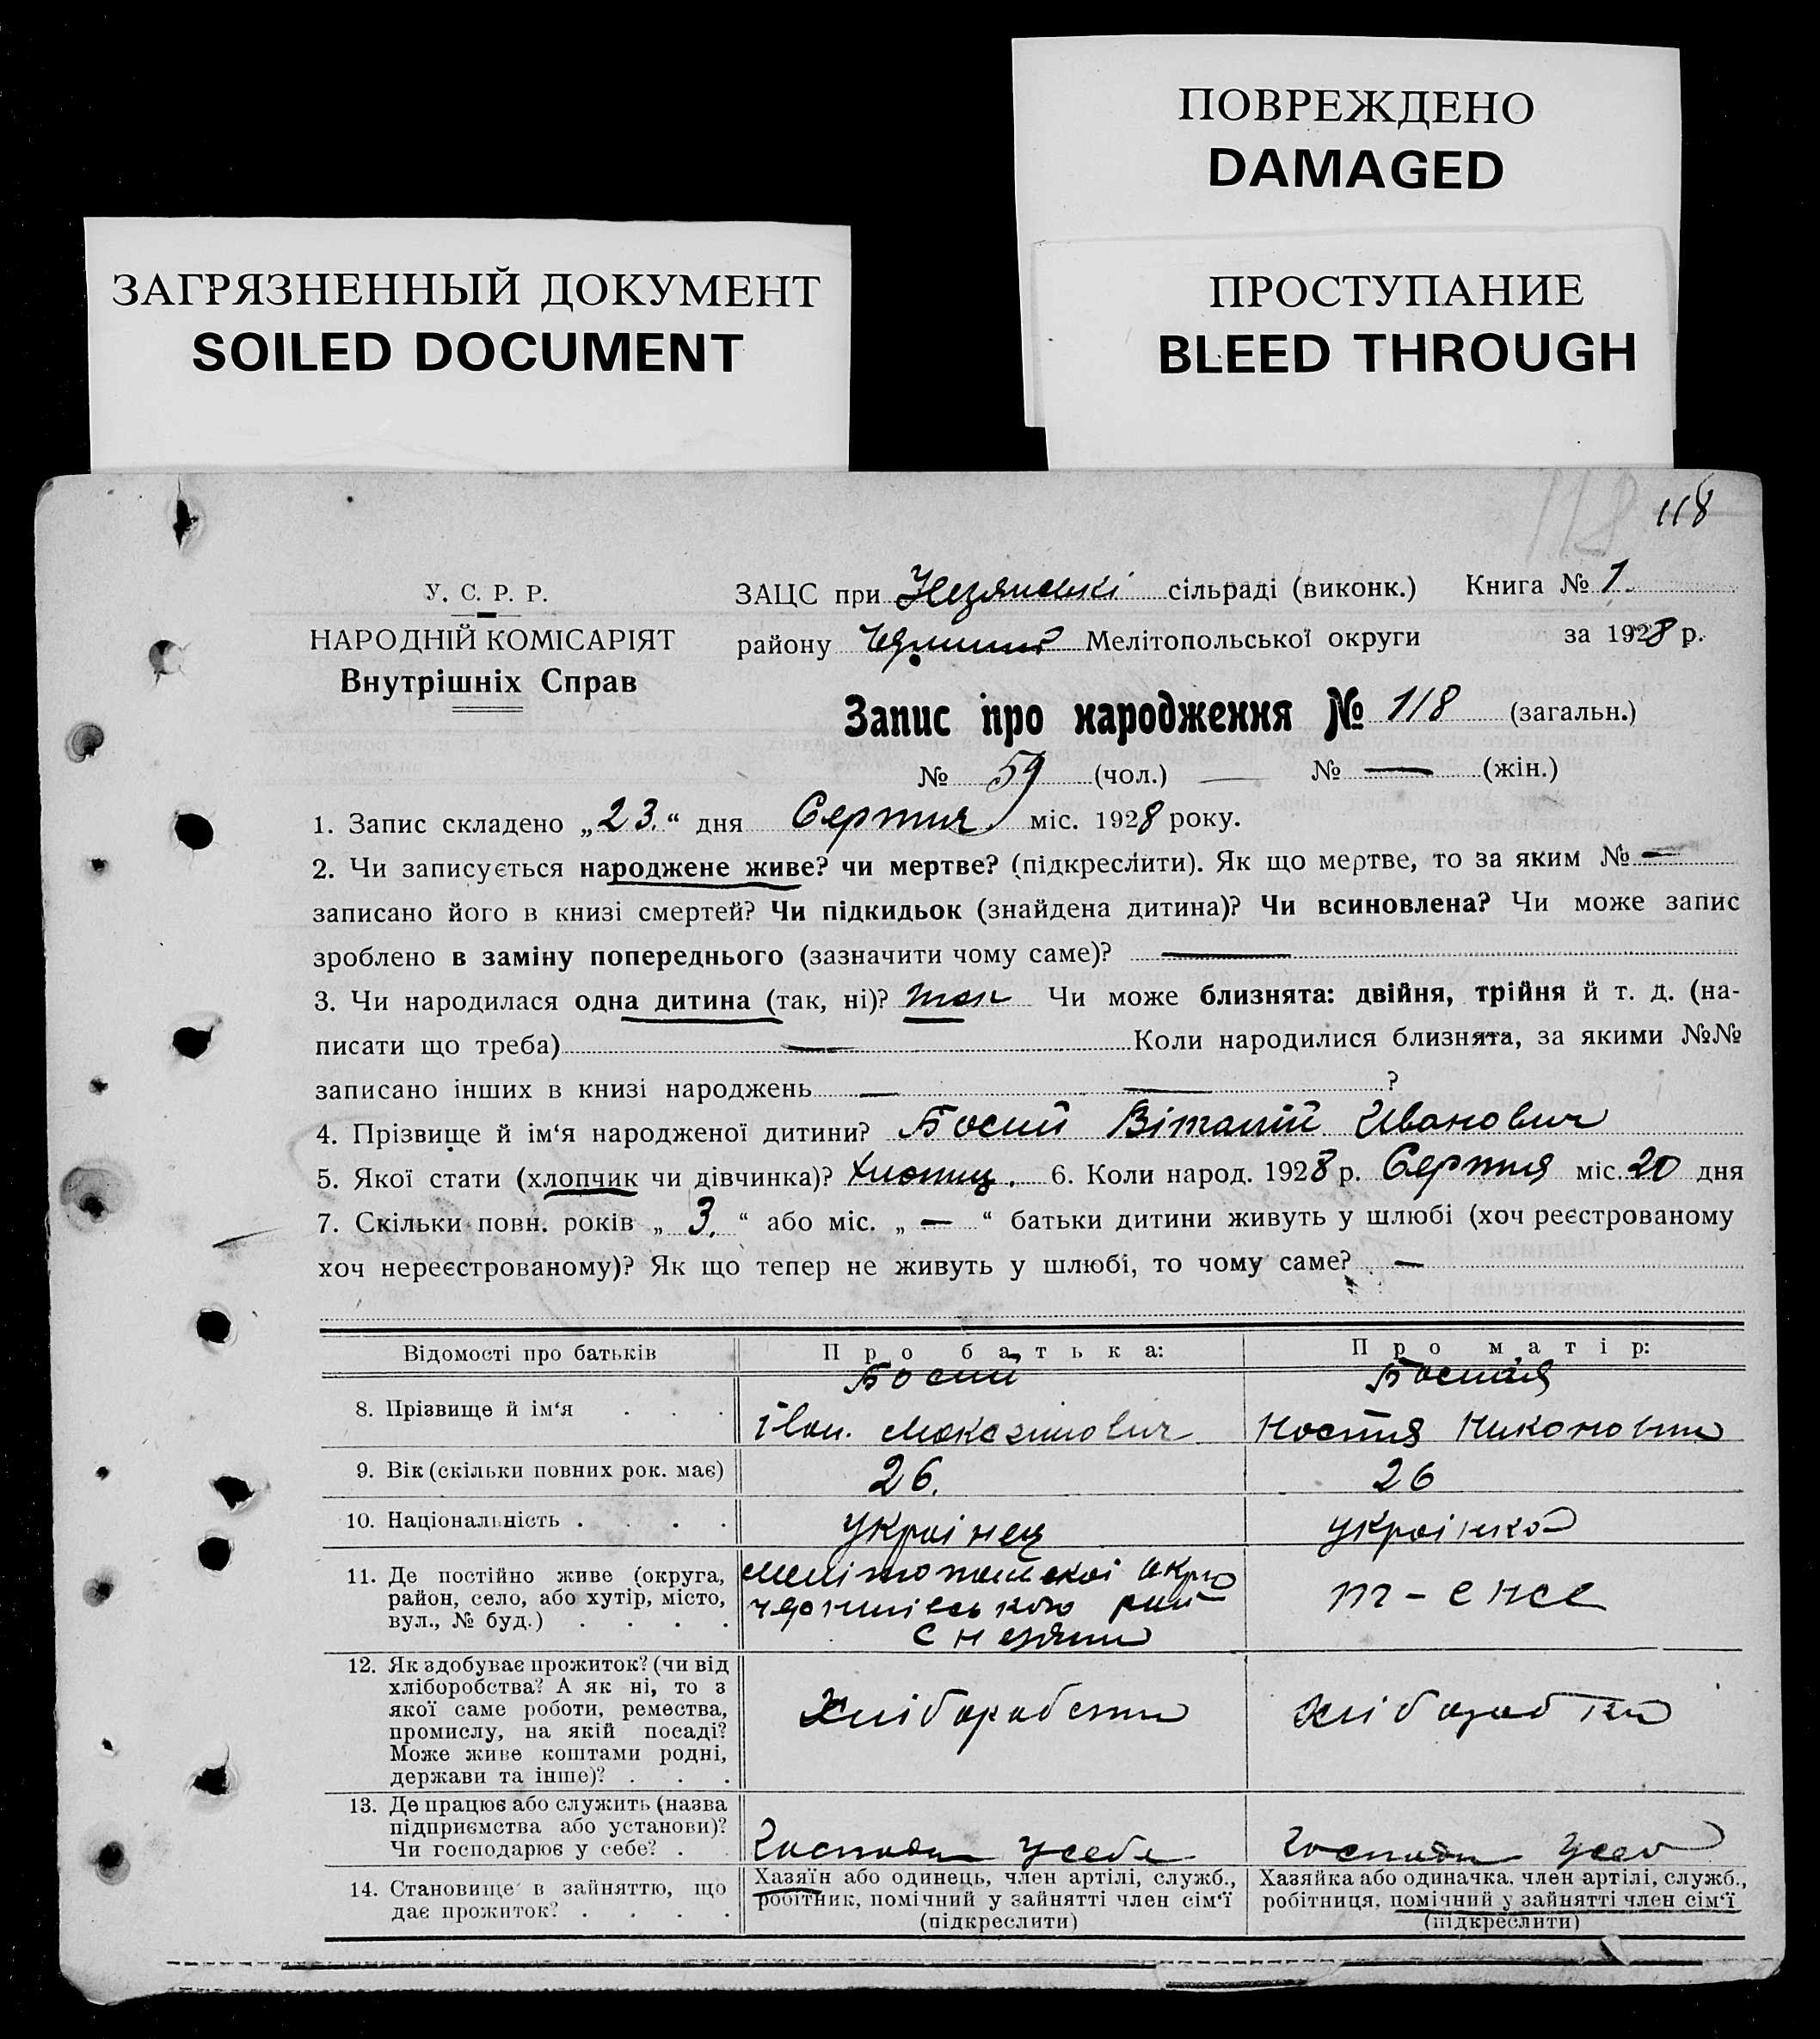 ПОВРЕЖДЕНО
DAMAGED
ЗАГРЯЗНЕННЫЙ ДОКУМЕНТ
SOILED DOCUMENT
ПРОСТУПАНИЕ
BLEED THROUGH
118
118
У. С. Р. Р.
НАРОДНІЙ КОМІСАРІЯТ
Внутрішніх Справ
ЗАЦС при сільраді (виконк.) Книга № 1.
району Мелітопольської округи за 1928 р.
Запис про народження № 118 (загальн.)
№ 59 (чол.) № — (жін.)
1. Запис складено „23.“ дня Серпня міс. 1928 року.
2. Чи записується народжене живе? чи мертве? (підкреслити). Як що мертве, то за яким № —
записано його в книзі смертей? Чи підкидьок (знайдена дитина)? Чи всиновлена? Чи може запис
зроблено в заміну попереднього (зазначити чому саме)? —
3. Чи народилася одна дитина (так, ні)? так Чи може близнята: двійня, трійня й т. д. (на-
писати що треба) — Коли народилися близнята, за якими №№
записано інших в книзі народжень — — ?
4. Прізвище й ім‘я народженої дитини? Босий Віталій Иванович
5. Якої стати (хлопчик чи дівчинка)? Хлопец. 6. Коли народ. 1928 р. Серпня міс. 20 дня
7. Скільки повн. років „ 3. “ або міс. „ — “ батьки дитини живуть у шлюбі (хоч реєстрованому
хоч нереєстрованому)? Як що тепер не живуть у шлюбі, то чому саме? —
Відомості про батьків
Про батька:
Про матір:
8. Прізвище й ім‘я . . .
Босий
Іван. Максимович
Босная
Настя Никоновна
9. Вік (скільки повних рок. має)
26.
26
10. Національність . . . .
українец
українка
11. Де постійно живе (округа,
район, село, або хутір, місто,
вул., № буд.) . . . .
мелітопольскоі окр
т-еже
12. Як здобуває прожиток? (чи від
хліборобства? А як ні, то з
якої саме роботи, ремества,
промислу, на якій посаді?
Може живе коштами родні,
держави та інше)? . . .
Хлібаробство
хлібаробтво
13. Де працює або служить (назва
підприємства або установи)?
Чи господарює у себе? .
Господар усебе
Господар усебе
14. Становище в зайняттю, що
дає прожиток? . . . .
Хазяїн або одинець, член артілі, служб.,
робітник, помічний у зайнятті член сім‘ї
(підкреслити)
Хазяйка або одиначка, член артілі, служб.,
робітниця, помічний у зайнятті член сім‘ї
(підкреслити)